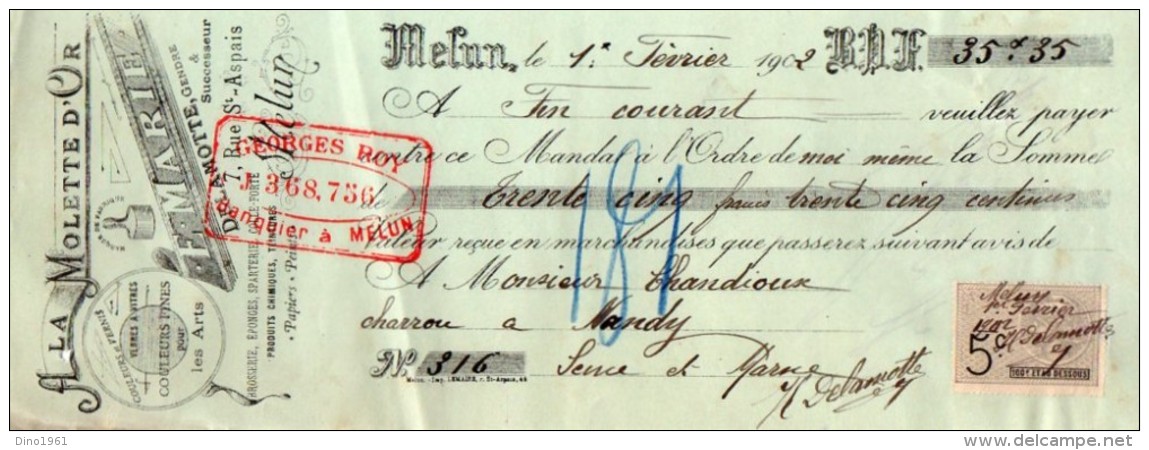 A LA MOLETTE D'OR
MARQUE DE FABRIQUE
COULEURS ET VERNIS
VERRES A VITRES
COULEURS FINES
POUR
les Arts
FÉ. MARIE
DELAMOTTE, GENDRE
&
Successeur
7, Rue St-Aspais
Melun
BROSSERIE, ÉPONGES, SPARTERIE
PRODUITS CHIMIQUES, TEINTURES
Papiers Peints
GEORGES ROY
J.368,756
Banquier à MELUN
Melun, le 1er Février 1902 B.P.F. 35f.35
A Fin courant veuillez payer
contre ce Mandat à l'Ordre de moi même la Somme
de Trente cinq francs trente cinq centimes
valeur reçue en marchandises que passerez suivant avis de
A Monsieur Chandioux
charron a Nandy
No 316 Seine et Marne
Delamotte
Melun. - Imp. LEMAIRE, r. St-Aspais, 49
189
Melun
1er Février
1902
Delamotte
5c
100f ET AU DESSOUS
Dino1961
delcampe.net